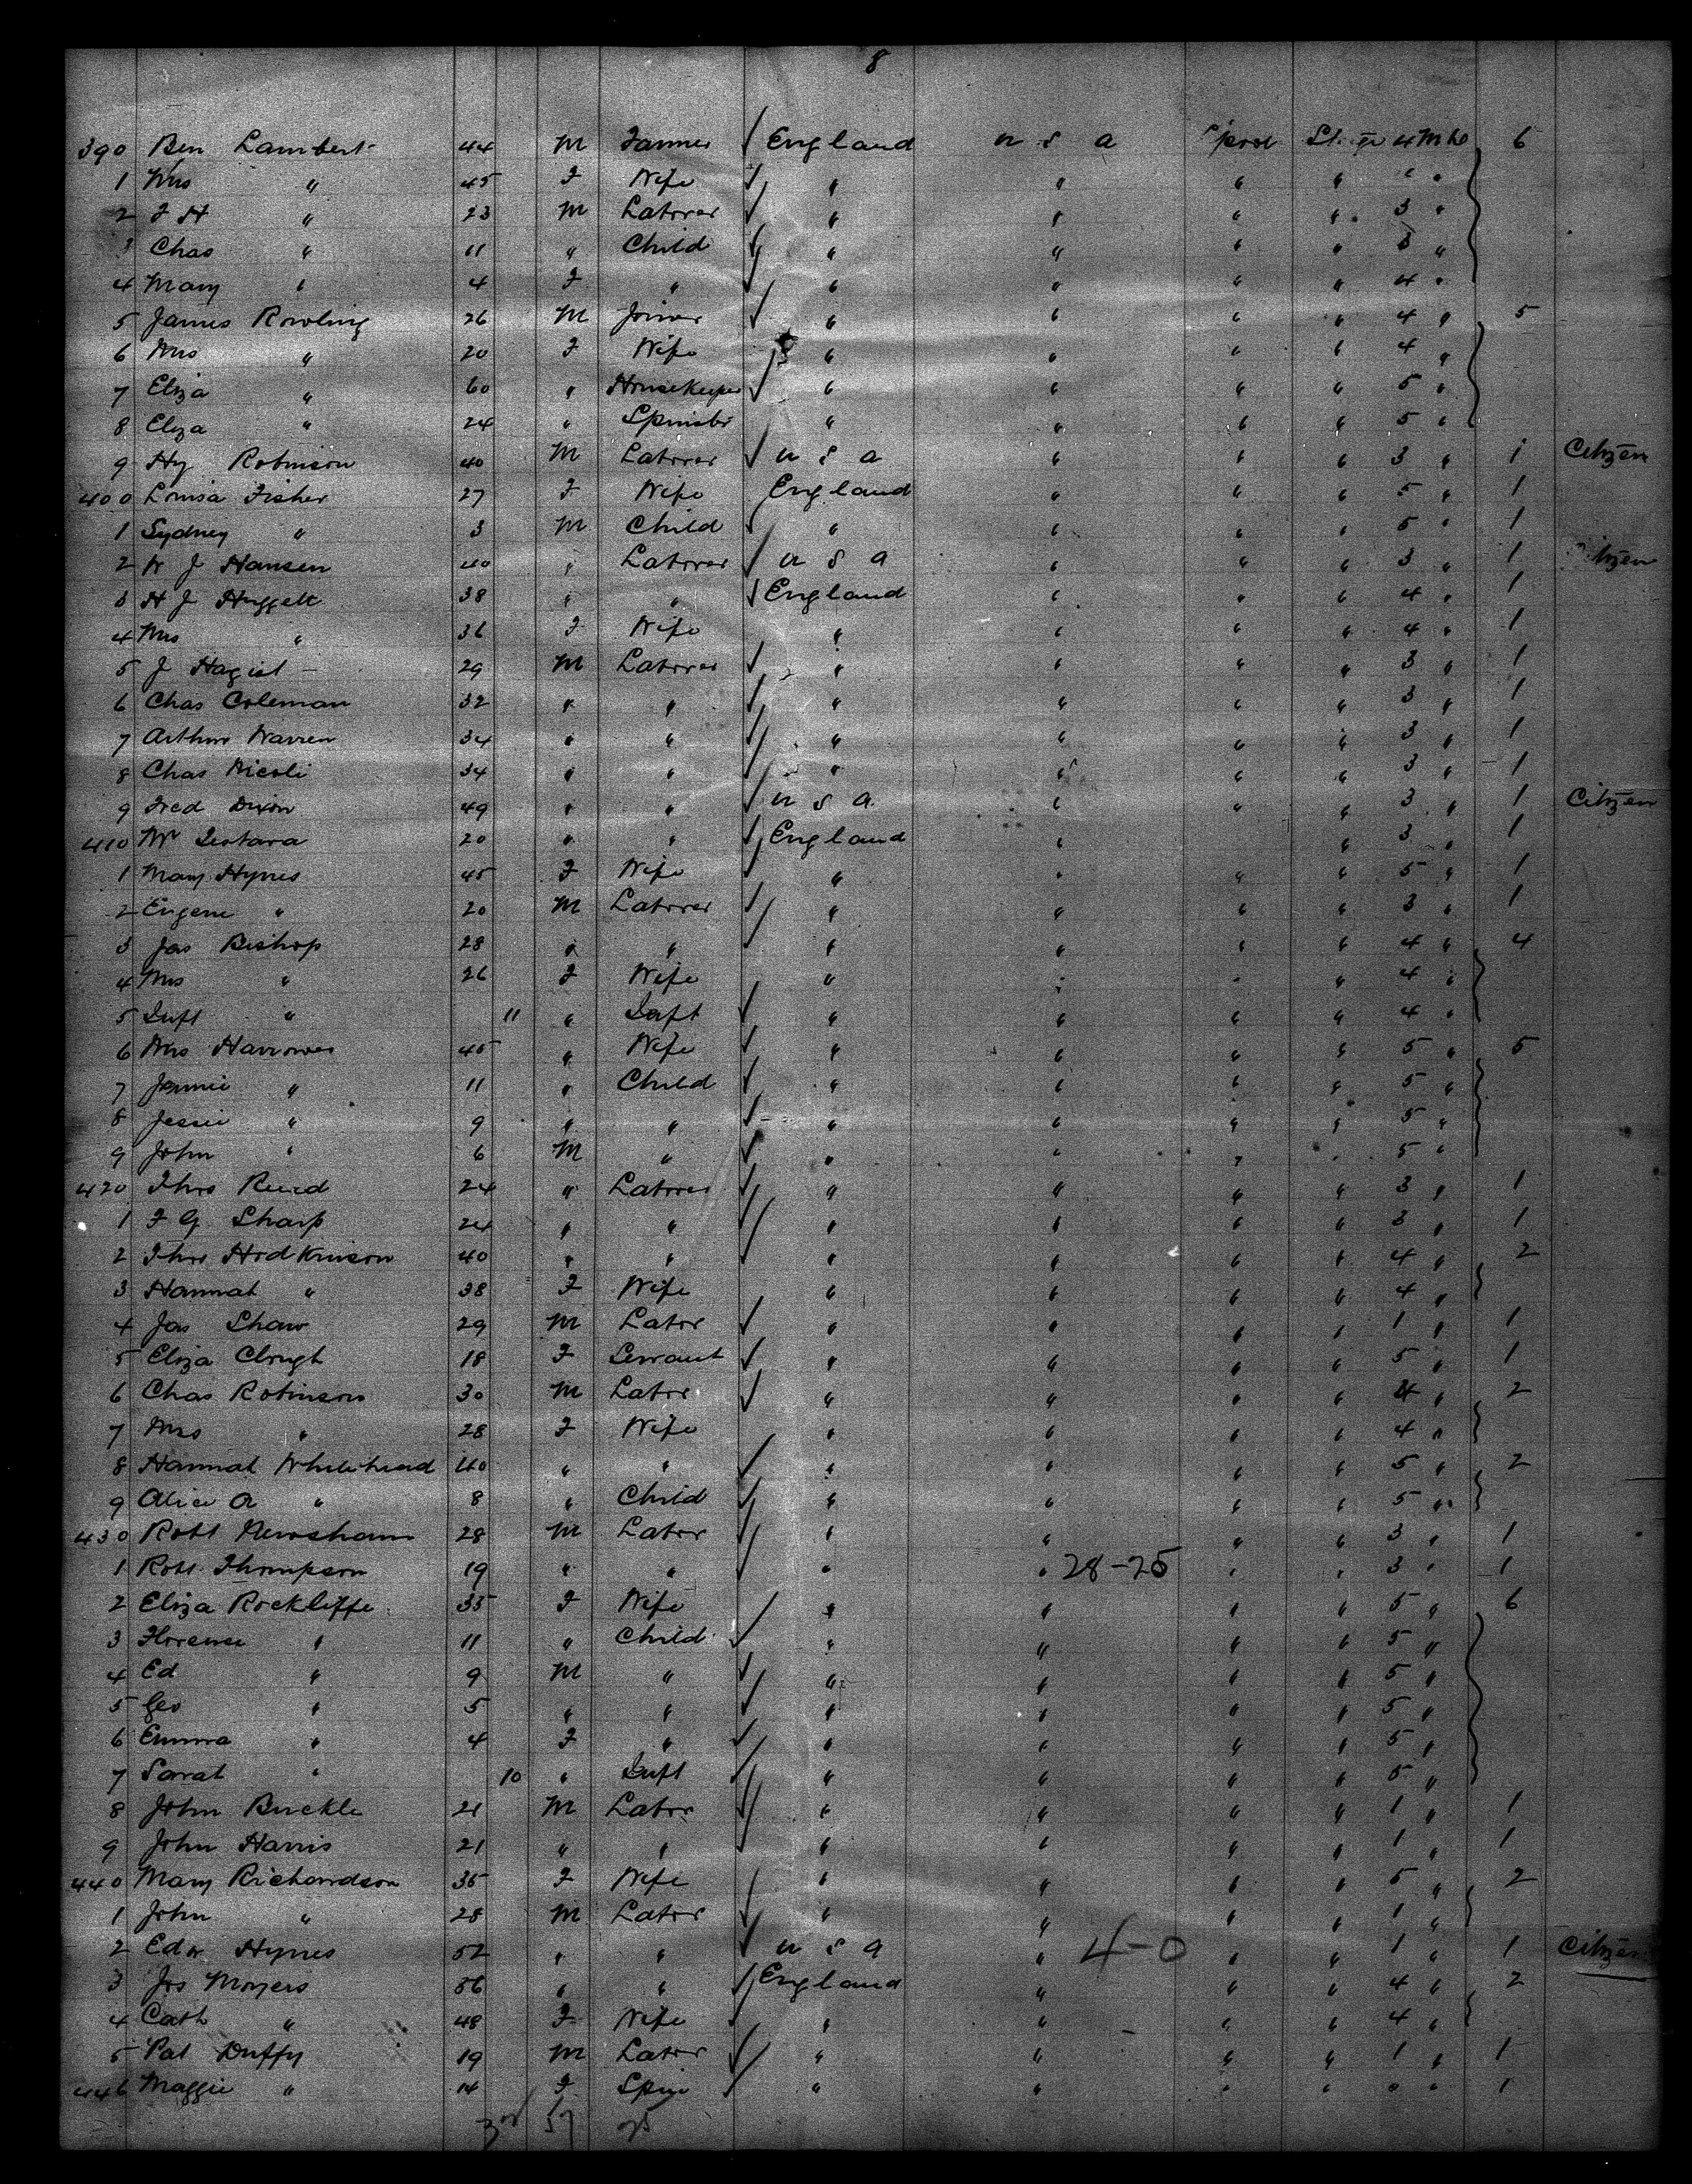 8
390 Ben Lambert 44 M Farmer England U S A Sprod Steerge 4 M ho 6
1 Mrs " 45 F Wife " " " " " "
2 F H " 23 M Laborer " " " " 3 "
3 Chas " 11 " Child " " " " 3 "
4 Mary " 4 F " " " " " 4 "
5 James Rowling 26 M Joiner " " " " 4 " 5
6 Mrs " 20 F Wife " " " " 4 "
7 Eliza " 60 " Housekeeper " " " " 5 "
8 Eliza " 24 " Spinster " " " " 5 "
9 Hy Robinson 40 M Laborer U S A " " " 3 " 1 Citizen
400 Louisa Fisher 27 F Wife England " " " 5 " 1
1 Sydney " 3 M Child " " " " 5 " 1
2 W J Hansen 40 " Laborer U S A " " " 3 " 1 Citizen
3 H J Huggett 38 " " England " " " 4 " 1
4 Mrs " 36 F Wife " " " " 4 " 1
5 J Hagist 29 M Laborer " " " " 3 " 1
6 Chas Coleman 32 " " " " " " 3 " 1
7 Arthur Warren 34 " " " " " " 3 " 1
8 Chas Nicoli 34 " " " " " " 3 " 1
9 Fred Dixon 49 " " U S A " " " 3 " 1 Citizen
410 Wm 20 " " England " " 3 " 1
1 Mary Hynes 45 F Wife " " " " 5 " 1
2 Eugene " 20 M Laborer " " " " 3 " 1
3 Jas Bishop 28 " " " " " " 4 " 4
4 Mrs " 26 F Wife " " " " 4 "
5 Inft " 11 " Inft " " " " 4 "
6 Mrs Harrower 45 " Wife " " " " 5 " 5
7 Jennie " 11 " Child " " " " 5 "
8 Jessie " 9 " " " " " " 5 "
9 John " 6 M " " " " " 5 "
420 Thos Reed 24 " Laborer " " " " 3 " 1
1 F G Sharp 24 " " " " " " 3 " 1
2 Thos Hodkinson 40 " " " " " " 4 " 2
3 Hannah " 38 F Wife " " " " 4 "
4 Jas Shaw 29 M Labor " " " " 1 " 1
5 Eliza Clough 18 F Servant " " " " 5 " 1
6 Chas Robinson 30 M Labor " " " " 4 " 2
7 Mrs " 28 F Wife " " " " 4 "
8 Hannah Whitehead 40 " " " " " " 5 " 2
9 Alice A " 8 " Child " " " " 5 "
430 Robt Newsham 28 M Labor " " " " 3 " 1
1 Robt Thompson 19 " " " " 28-25 " " 3 " 1
2 Eliza Rockliffe 35 F Wife " " " " 5 " 6
3 Florence " 11 " Child " " " " 5 "
4 Ed " 9 M " " " " " 5 "
5 Geo " 5 " " " " " " 5 "
6 Emma " 4 F " " " " " 5 "
7 Sarah " 10 " Inft " " " " 5 "
8 John Buckle 21 M Labor " " " " 1 " 1
9 John Harris 21 " " " " " " 1 " 1
440 Mary Richardson 35 F Wife " " " " 5 " 2
1 John " 28 M Labor " " " " 1 "
2 Edw Hynes 52 " " U S A " 4-0 " " 1 " 1 Citizen
3 Jos Moyers 56 " " England " " " 4 " 2
4 Cath " 48 F Wife " " " " 4 "
5 Pat Duffy 19 M Labor " " " " 1 " 1
446 Maggie " 14 F Spin " " " " " " 1
57